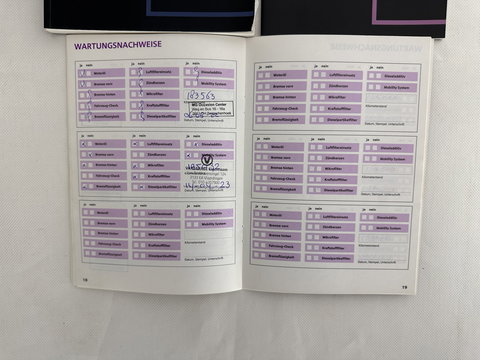 WARTUNGSNACHWEISE
ja nein ja nein ja nein
Motoröl Luftfiltereinsatz Dieseladditiv
Bremse vorn Zündkerzen Mobility System
Bremse hinten Mikrofilter 103563
Fahrzeug-Check Kraftstofffilter
Bremsflüssigkeit Dieselpartikelfilter
Datum, Stempel, Unterschrift
ja nein ja nein ja nein
Motoröl Luftfiltereinsatz Dieseladditiv
Bremse vorn Zündkerzen Mobility System
Bremse hinten Mikrofilter
Fahrzeug-Check Kraftstofffilter
Bremsflüssigkeit Dieselpartikelfilter
Datum, Stempel, Unterschrift
ja nein ja nein ja nein
Motoröl Luftfiltereinsatz Dieseladditiv
Bremse vorn Zündkerzen Mobility System
Bremse hinten Mikrofilter
Kilometerstand
Fahrzeug-Check Kraftstofffilter
Bremsflüssigkeit Dieselpartikelfilter
Datum, Stempel, Unterschrift
18
ja nein ja nein ja nein
Motoröl Luftfiltereinsatz Dieseladditiv
Bremse vorn Zündkerzen Mobility System
Bremse hinten Mikrofilter
Kilometerstand
Fahrzeug-Check Kraftstofffilter
Bremsflüssigkeit Dieselpartikelfilter
Datum, Stempel, Unterschrift
ja nein ja nein ja nein
Motoröl Luftfiltereinsatz Dieseladditiv
Bremse vorn Zündkerzen Mobility System
Bremse hinten Mikrofilter
Kilometerstand
Fahrzeug-Check Kraftstofffilter
Bremsflüssigkeit Dieselpartikelfilter
Datum, Stempel, Unterschrift
ja nein ja nein ja nein
Motoröl Luftfiltereinsatz Dieseladditiv
Bremse vorn Zündkerzen Mobility System
Bremse hinten Mikrofilter
Kilometerstand
Fahrzeug-Check Kraftstofffilter
Bremsflüssigkeit Dieselpartikelfilter
Datum, Stempel, Unterschrift
19